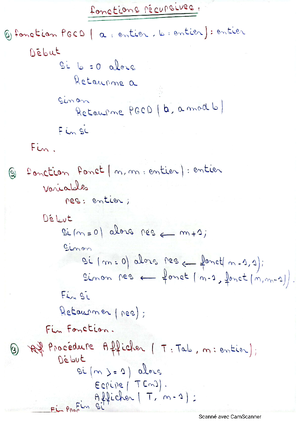 fonctions récursives.
fonction PGCD ( a : entier, b : entier) : entier
Début
Si b = 0 alors
Retourne a
Sinon
Retourne PGCD ( b, a mod b)
Fin Si
Fin.
fonction fonct ( m, n : entier) : entier
variables
res : entier ;
Début
Si (m = 0) alors res ← n+1 ;
Sinon
Si ( n = 0) alors res ← fonct( m-1, 1);
Sinon res ← fonct ( m-1, fonct (m, n-1));
Fin Si
Retourner (res) ;
Fin Fonction.
Procédure Afficher ( T : Tab, n : entier);
Début
Si ( n >= 1) alors
Ecrire ( T[n]).
Afficher ( T, n-1) ;
Fin Si
Scanné avec CamScanner